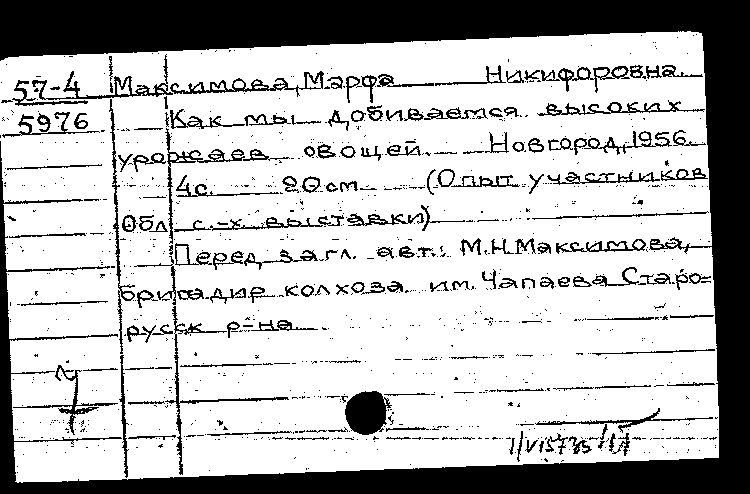 57-4 Максимова, Марфа Никифоровна.
5976 Как мы добиваемся высоких
урожаев овощей. Новгород, 1956.
4с. 20см (Опыт участников
Обл с.-х. выставки)
Перед загл. авт.: М.Н.Максимова,
бригадир колхоза им. Чапаева Старо=
русск р-на